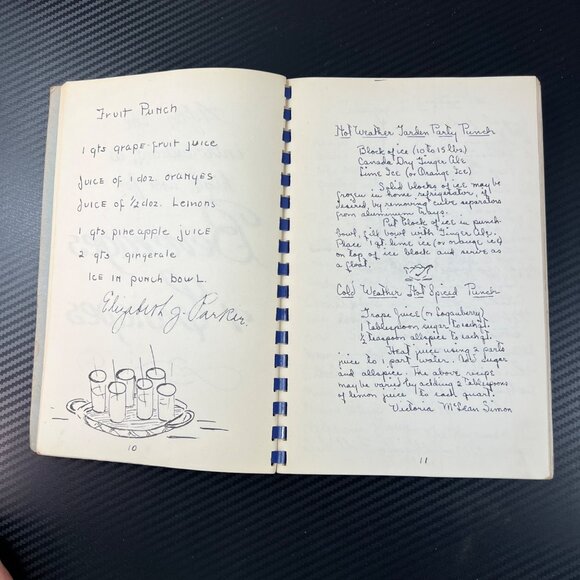 Fruit Punch
1 qts grape-fruit juice
Juice of 1 doz. oranges
Juice of ½ doz. Lemons
1 qts pineapple juice
2 qts gingerale
Ice in punch bowl.
Elizabeth J. Parker.
10
Hot Weather Garden Party Punch
Block of ice (10 to 15 lbs)
Canada Dry Ginger Ale
Lime Ice (or Orange Ice)
Solid blocks of ice may be
frozen in home refrigerator, if
desired by removing cube separators
from aluminum trays.
Put block of ice in punch
bowl, fill bowl with Ginger Ale.
Place 1 qt. lime ice (or orange ice)
on top of ice block and serve as
a float.
Cold Weather Hot Spiced Punch
Grape Juice (or Loganberry)
1 tablespoon sugar to each qt.
½ teaspoon allspice to each qt.
Heat juice using 2 parts
juice to 1 part water. Add sugar
and allspice. The above recipe
may be varied by adding 2 tablespoons
of lemon juice to each quart.
Victoria McLean Simon
11